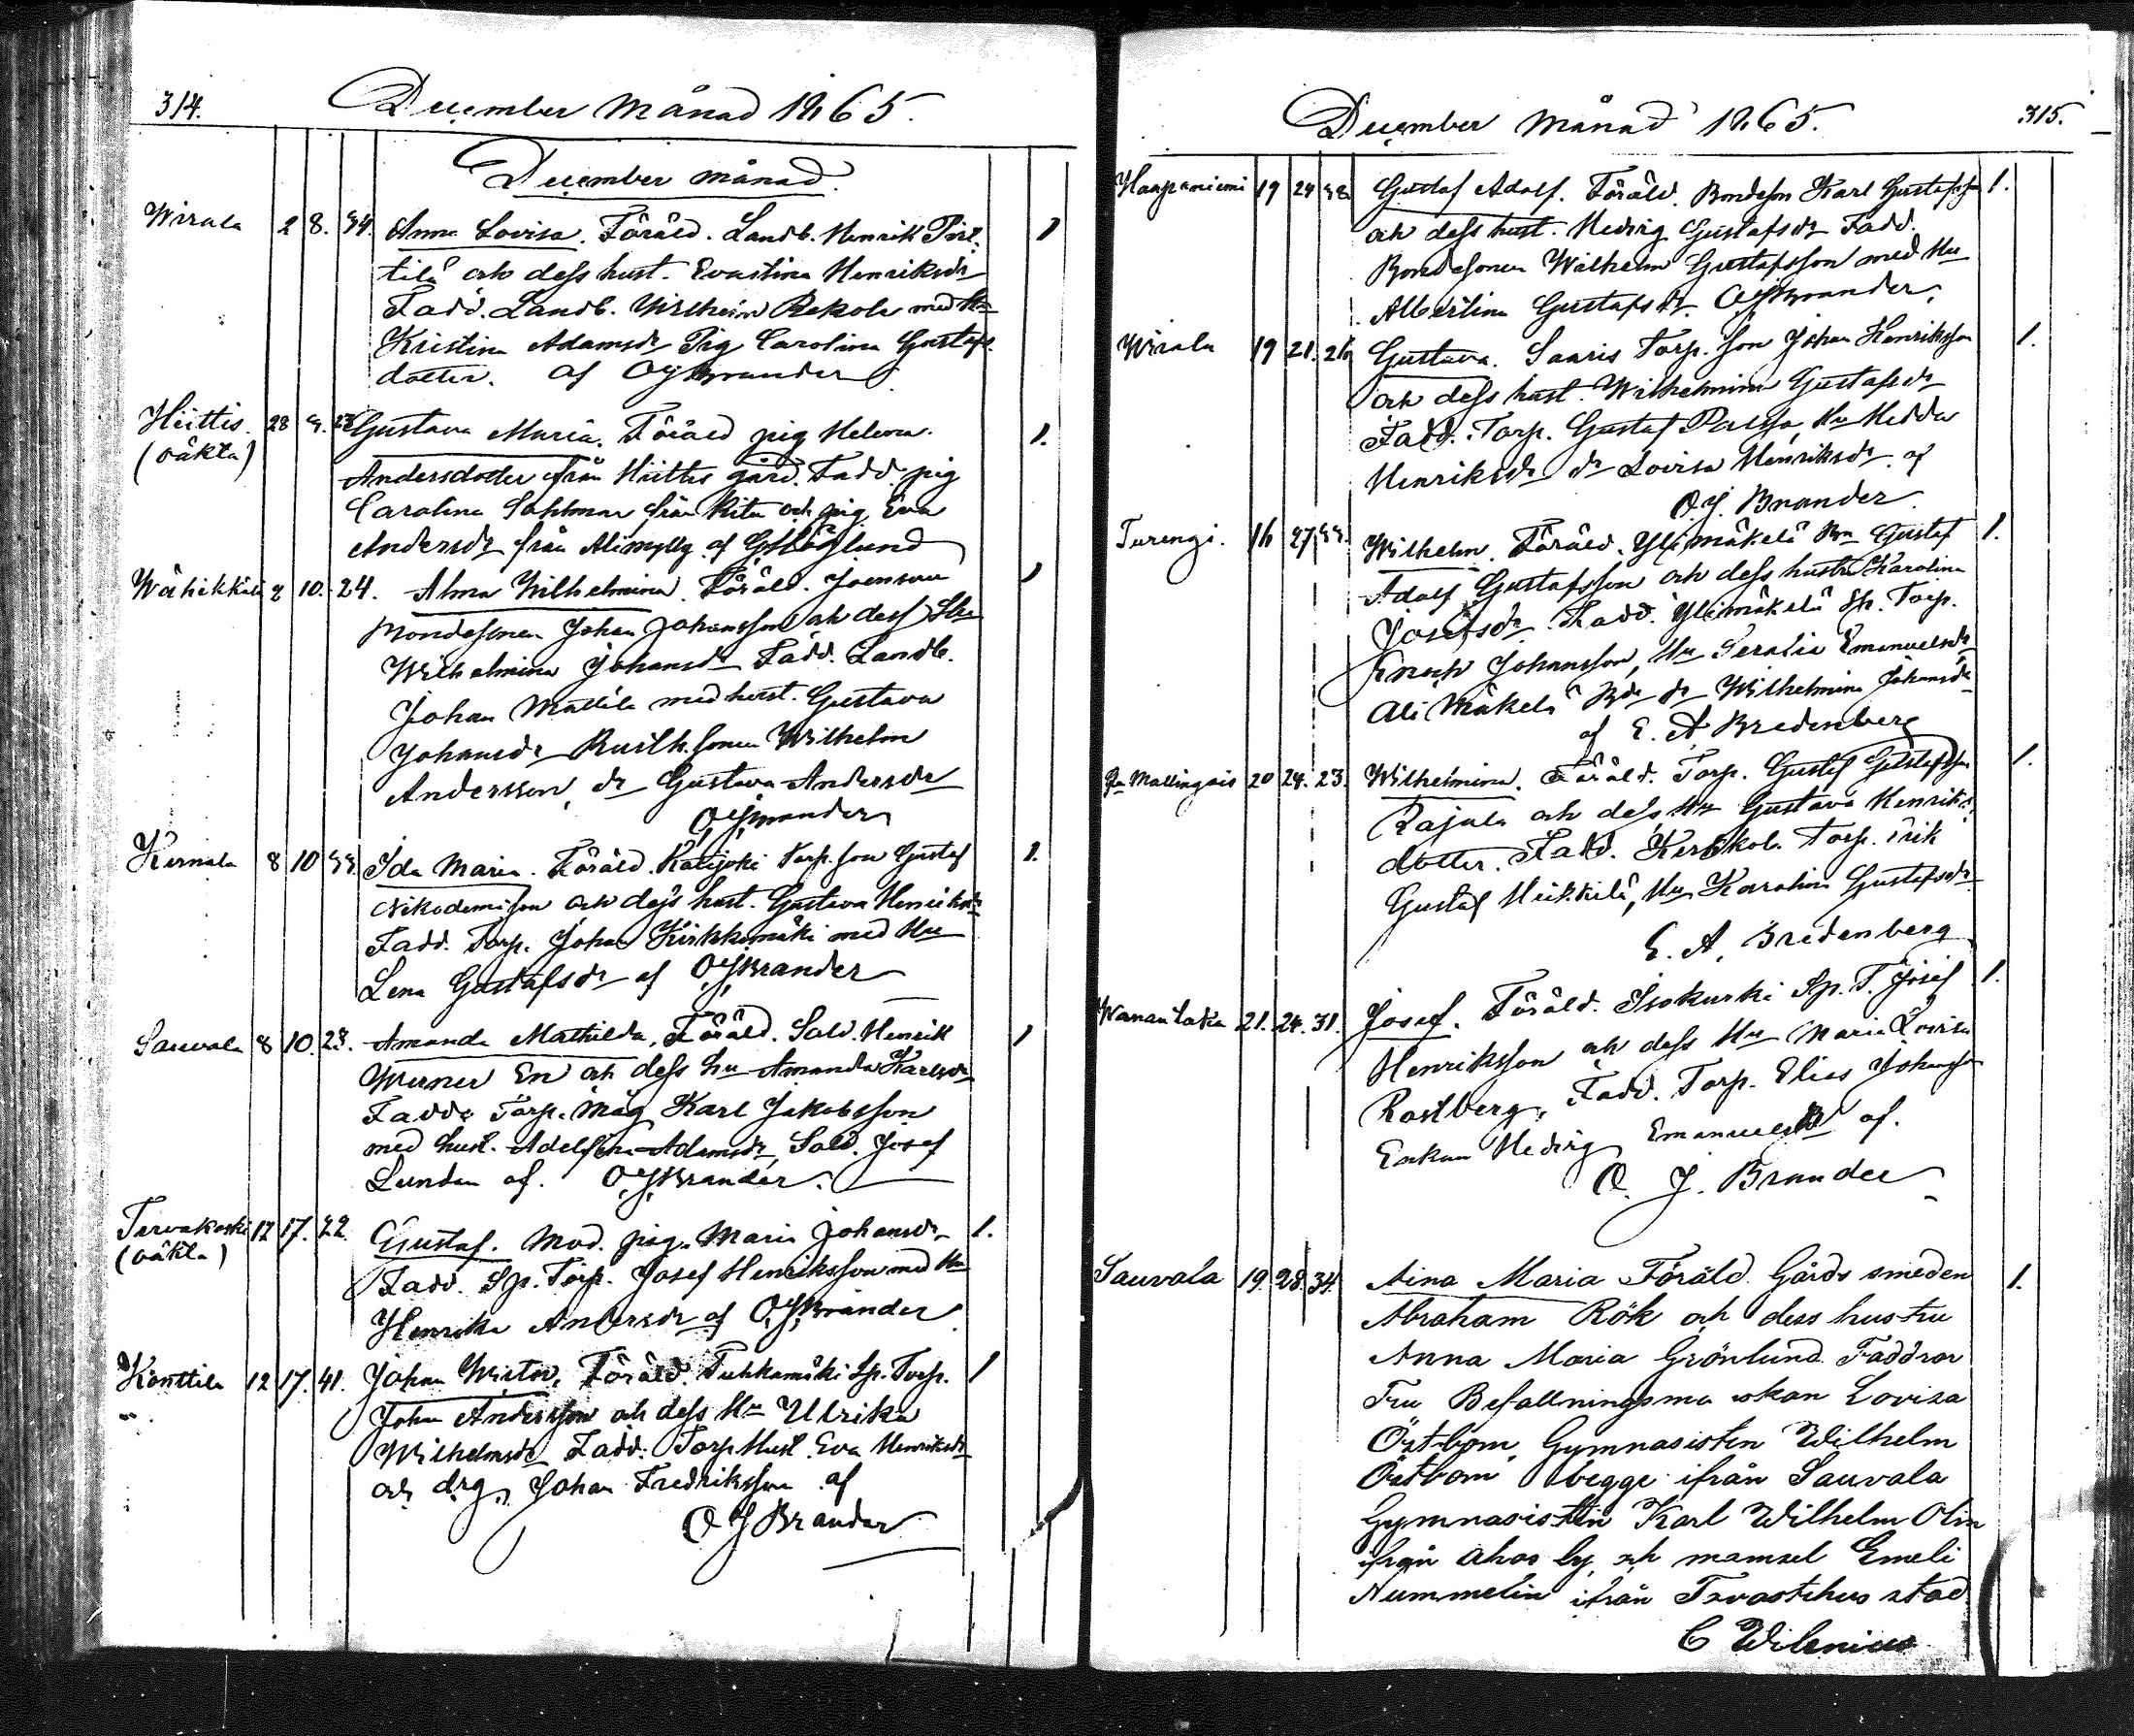 314.
December Månad 1865.
December månad.
Wirala 2 8. 34. Anna Lovisa. Föräld. Landb. Henrik Pert-
tilä och dess hust. Evastina Henriksdr
Fadd. Landb. Wilhelm Rekola med Hu
Kristina Adamsdr Pig Carolina Gustafs
dotter. af OJBrander
Hiittis. 28 9. Gustava Maria. Föräld pig Helena
(oäkta) Andersdotter från Hiittis gård. Fadd. pig
Carolina Sahlman från och pig Eva
Andersdr från Alimylly af
Wähikkälä 2 10. 24. Alma Wilhelmina. Föräld. Joensuu
Bondesonen Johan Johansson och dess Hu
Wilhelmina Johansdr Fadd. Landb.
Johan Mattila med hust. Gustava
Johansdr Rusth.sonen Wilhelm
Andersson, dr Gustava Andersdr
OJBrander
Kernala 8 10 33. Ida Maria. Föräld. Torp. son Gustaf
Nikodemisson och dess hust. Gustava Henriksdr
Fadd. Torp. Johan Kirkkomäki med Hu
Lena Gustafsdr af OJBrander
Sauvala 8 10. 23. Amanda Mathilda. Föräld. Sold. Henrik
Werner En och dess hu Amanda Karlsdr
Fadd. Torp. måg Karl Jakobsson
med hust. Adelfina Adamsdr, Sold. Josef
Lunden af. OJBrander.
Tervakoski 12 17. 22. Gustaf. Mod. pig. Maria Johansdr 1.
(oäkta) Fadd. Sp. Torp. Josef Henriksson med Hu
Henrika Andersdr af OJBrander
Konttila 12 17. 41. Johan Wictor. Föräld. Tuhkamäki Sp. Torp. 1
Johan Andersson och dess Hu Ulrika
Wilhelmsdr Fadd. Torp Hust. Eva Henriksdr
och drg. Johan Fredriksson af
O J Brander
December Månad 1865. 315.
Haapaniemi 19 24 38 Gustaf Adolf. Föräld. Bondeson Karl Gustafsson 1.
och dess hust. Hedvig Gustafsdr Fadd.
Bondesonen Wilhelm Gustafsson med Hu
Albertina Gustafsdr. OJBrander.
Wirala 19 21. 26 Gustava. Saaris Torp. son Johan Henriksson 1.
och dess hust. Wilhelmina Gustafsdr
Fadd. Torp. Gustaf Hu Hedda
Henriksdr dr Lovisa Henriksdr af
O.J. Brander
Turengi. 16 27 33. Wilhelm. Föräld. Ylimäkelä Bn Gustaf 1.
Adolf Gustafsson och dess hustru Karolina
Josefsdr. Fadd. Ylimäkelä Sp. Torp.
Enock Johansson, Hu Serafia Emanuelsdr
Ali Mäkelä Bde dr Wilhelmina Johansdr
af E. A Bredenberg
Mallingais 20 24. 23. Wilhelmina. Föräld. Torp. Gustaf Gustafsson 1.
Rajala och dess Hu Gustava Henriks
dotter. Fadd. Torp. Erik
Gustaf Heikkilä, Hu Karolina Gustafsdr
E. A. Bredenberg
Wanantaka 21. 24. 31. Josef. Föräld. Isokurki Sp. T. Josef 1.
Henriksson och dess Hu Maria Lovisa
Rostberg. Fadd. Torp. Elias Johansson
Enkan Hedvig Emanuelsdr af.
O. J. Brander
Sauvala 19. 28. 34. Aina Maria Föräld. Gårds smeden 1.
Abraham Rök och dess hustru
Anna Maria Grönlund Faddrar
Fru Befallningsma skan Lovisa
Östbom, Gymnasisten Wilhelm
Östbom begge ifrån Sauvala
Gymnasisten Karl Wilhelm Olin
ifrån ahos by, och mamsel Emeli
Nummelin ifrån Tavastehus stad
C Wilenius